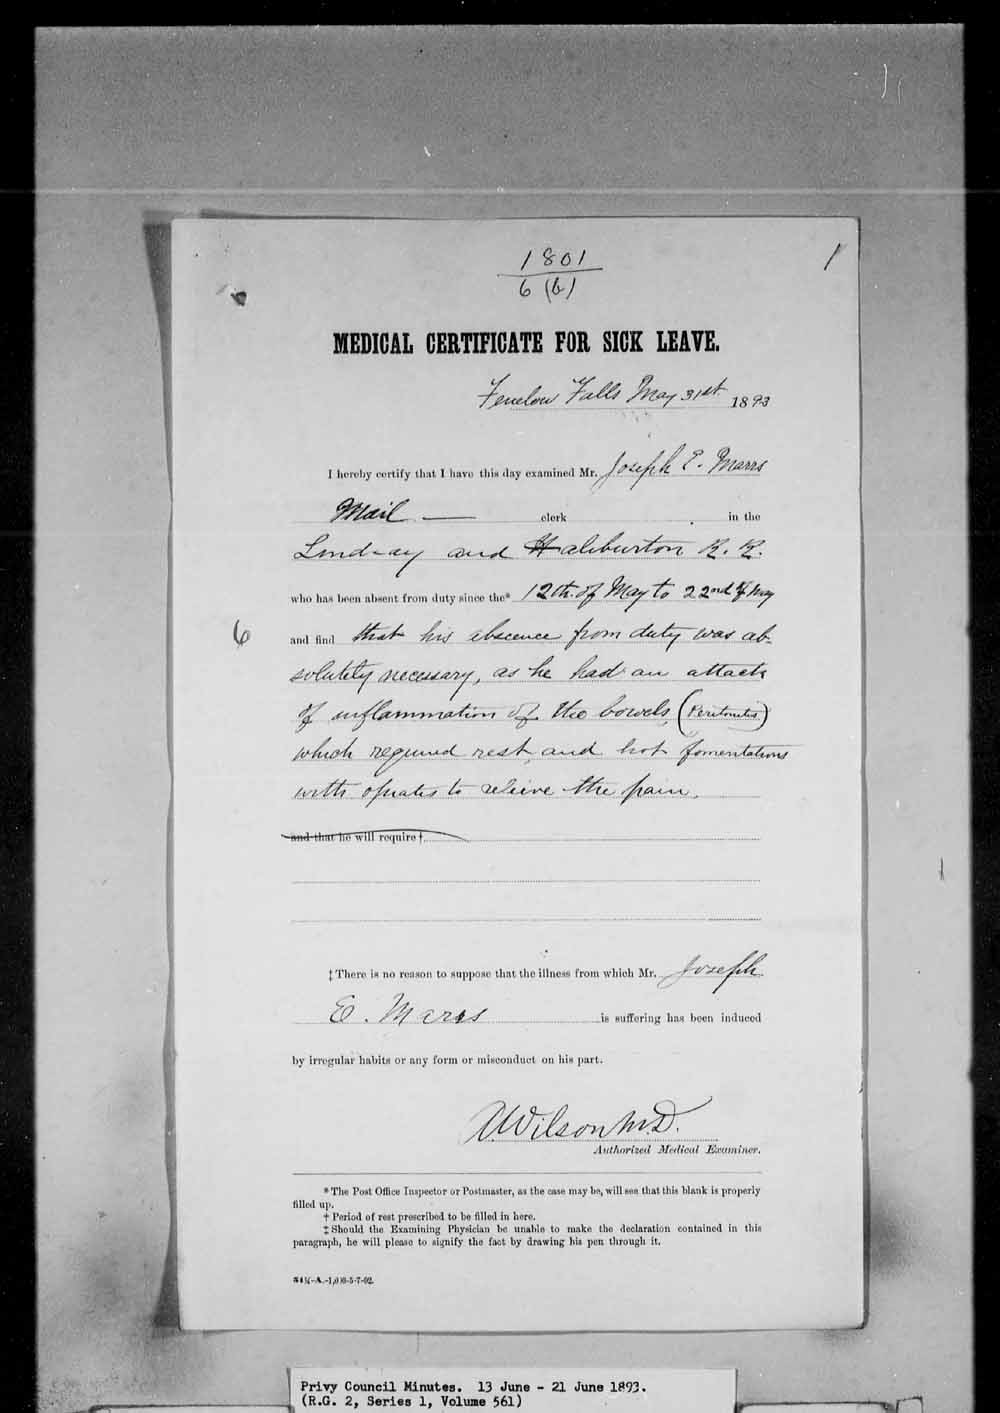 1801
6 (b)
1
MEDICAL CERTIFICATE FOR SICK LEAVE.
Fenelon Falls May 31st 1893
I hereby certify that I have this day examined Mr. Joseph E. Marrs
Mail — clerk in the
Lindsay and Haliburton R. R.
who has been absent from duty since the* 12th of May to 22nd of May
6
and find that his abscence from duty was ab-
solutely necessary, as he had an attack
of inflammation of the bowels (Peritonitis)
which required rest, and hot fomentations
with opiates to relieve the pain.
and that he will require †
‡ There is no reason to suppose that the illness from which Mr. Joseph
E. Marrs is suffering has been induced
by irregular habits or any form or misconduct on his part.
A. Wilson M.D.
Authorized Medical Examiner.
* The Post Office Inspector or Postmaster, as the case may be, will see that this blank is properly
filled up.
† Period of rest prescribed to be filled in here.
‡ Should the Examining Physician be unable to make the declaration contained in this
paragraph, he will please to signify the fact by drawing his pen through it.
Privy Council Minutes. 13 June - 21 June 1893.
(R.G. 2, Series 1, Volume 561)